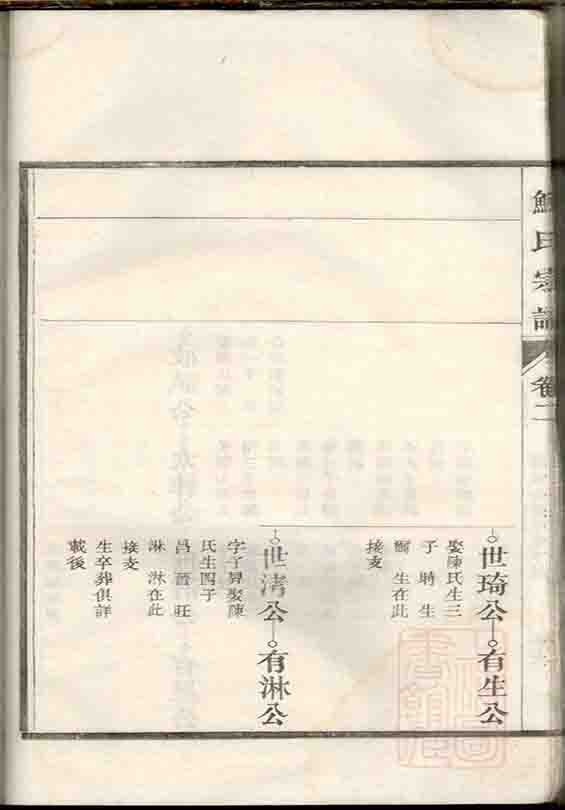 氏宗譜 卷二
世琦公 有生公
娶陳氏生三
子 時 生
生在此
接支
世清公 有淋公
字子昇娶陳
氏生四子
昌 旺
淋 淋在此
接支
生卒葬俱詳
載後